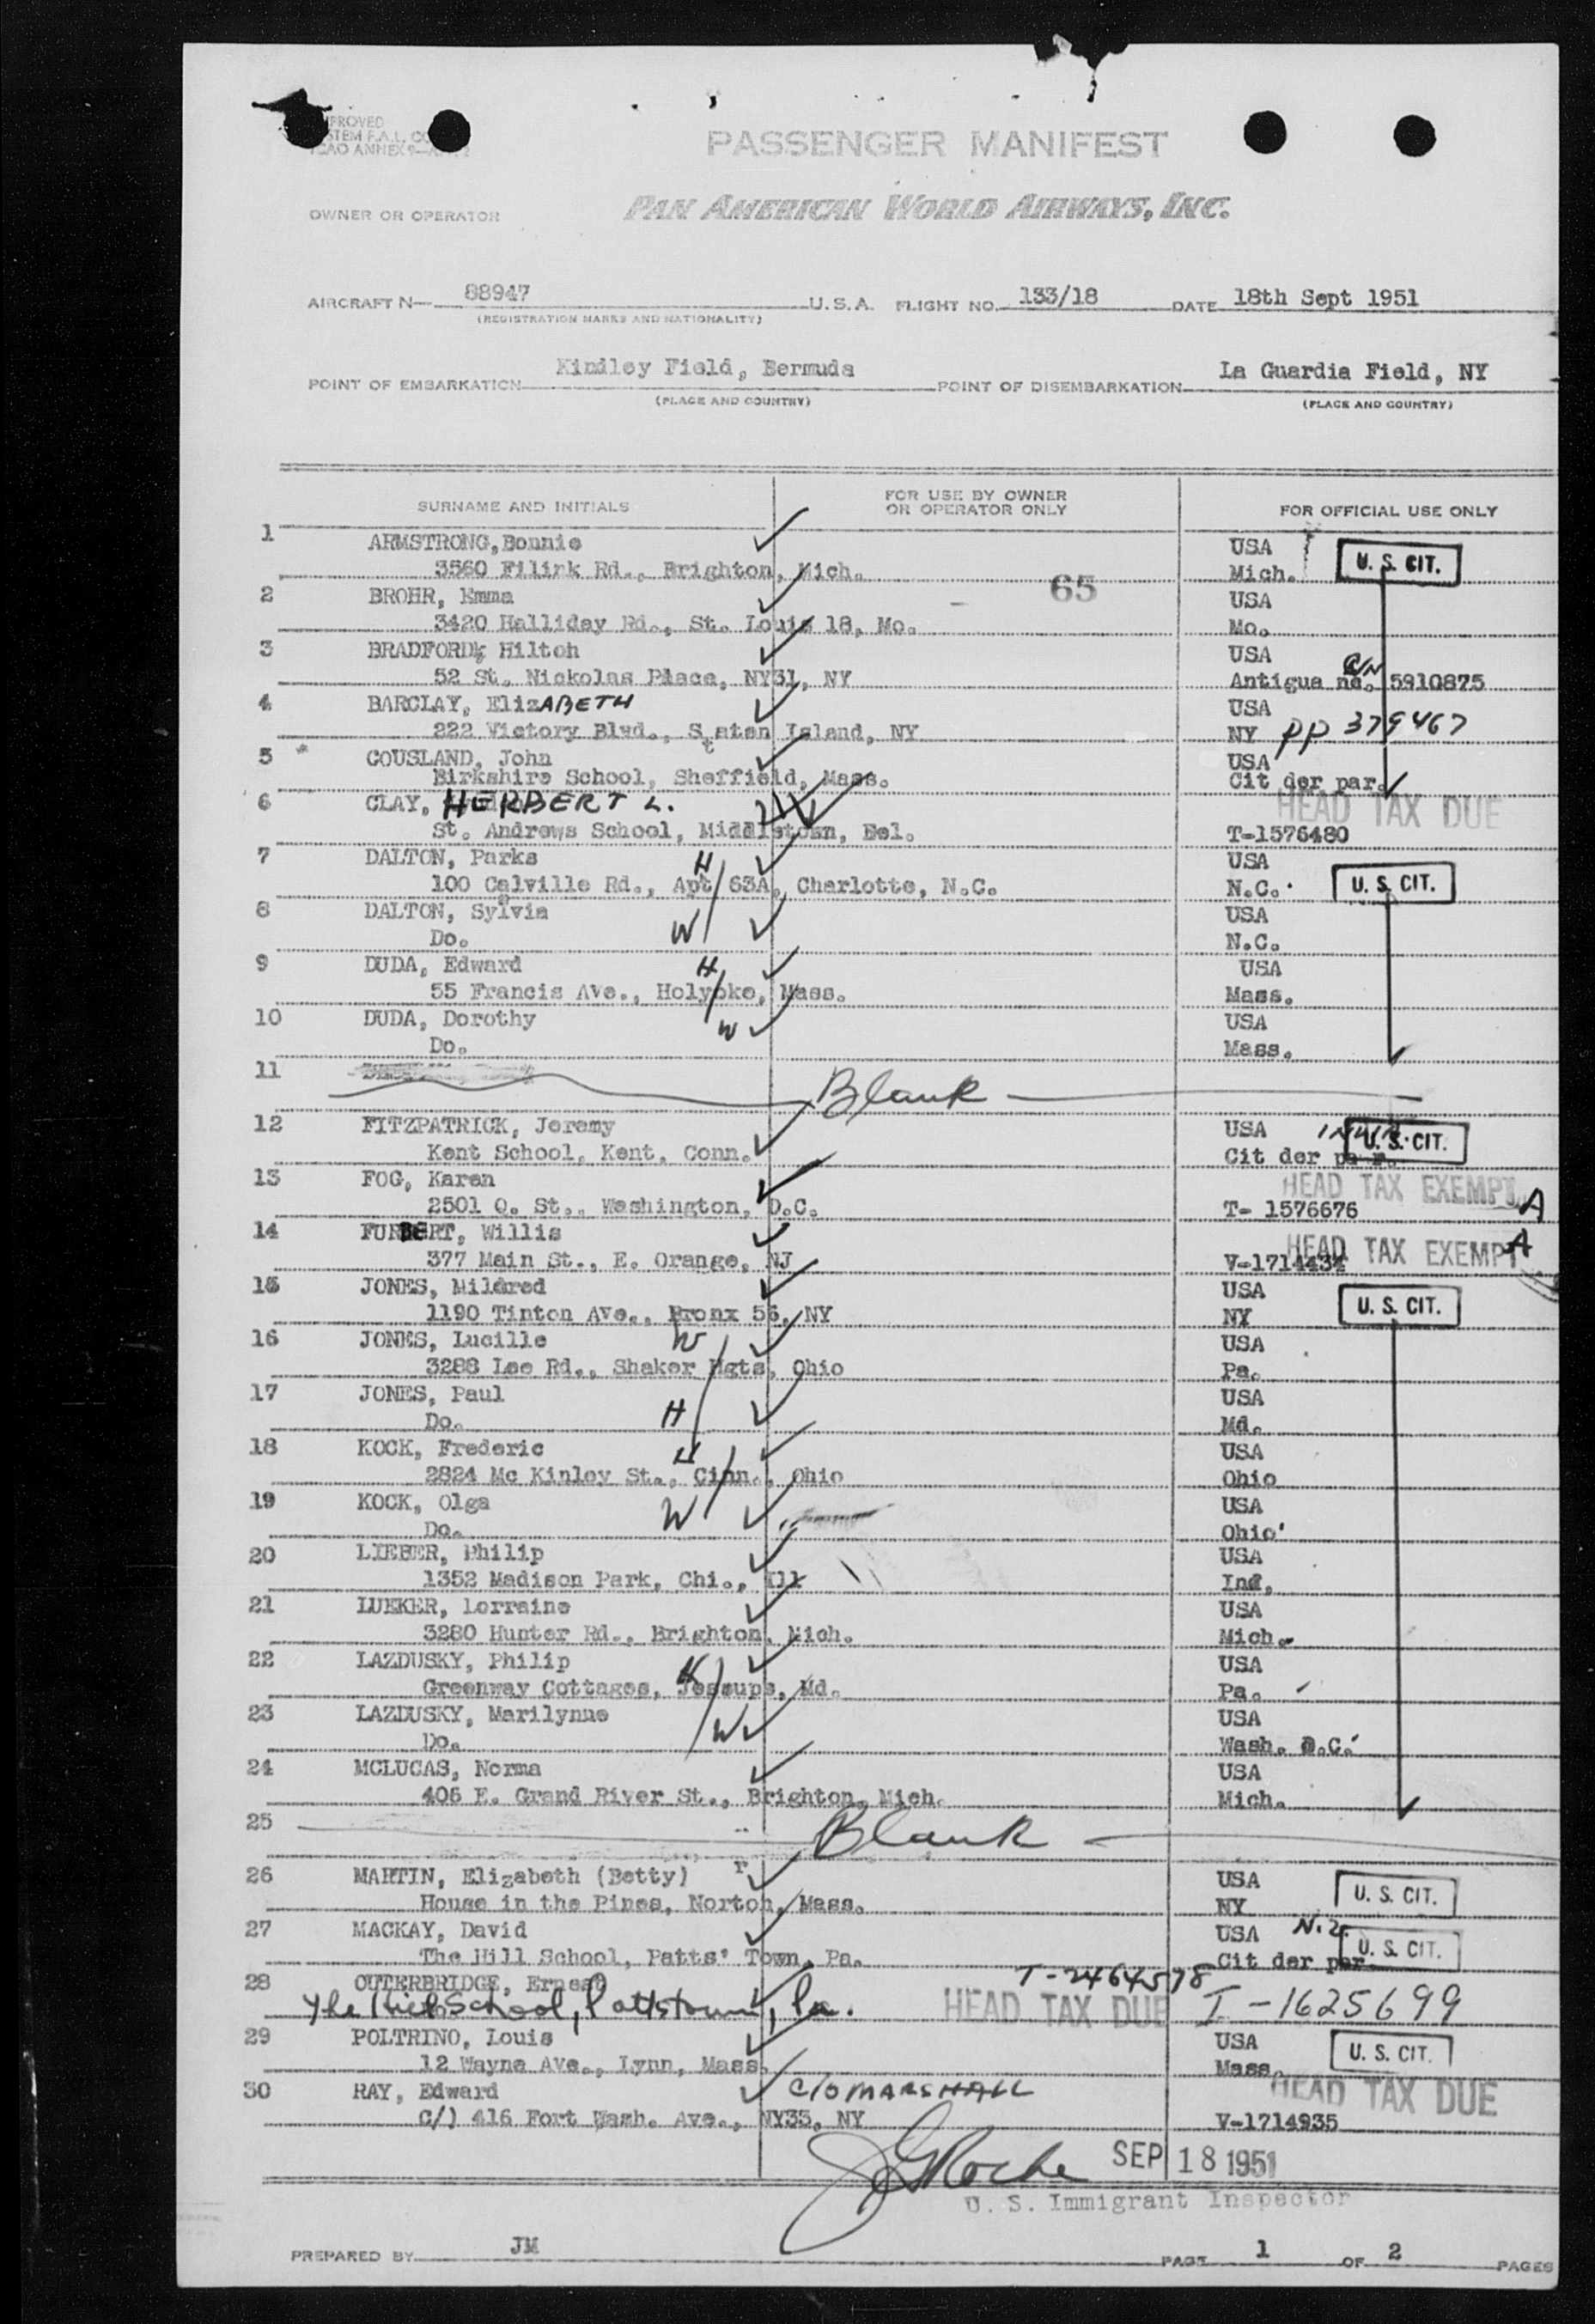 PROVED
STEM F.A.L. CO
ICAO ANNEX 9
PASSENGER MANIFEST
OWNER OR OPERATOR PAN AMERICAN WORLD AIRWAYS, INC.
AIRCRAFT N— 88947 U.S.A. FLIGHT NO. 133/18 DATE 18th Sept 1951
(REGISTRATION MARKS AND NATIONALITY)
POINT OF EMBARKATION Kindley Field, Bermuda POINT OF DISEMBARKATION La Guardia Field, NY
(PLACE AND COUNTRY) (PLACE AND COUNTRY)
SURNAME AND INITIALS FOR USE BY OWNER OR OPERATOR ONLY FOR OFFICIAL USE ONLY
1 ARMSTRONG, Bonnie USA U. S. CIT.
3560 Filink Rd., Brighton, Mich. Mich.
65
2 BROHR, Emma USA
3420 Halliday Rd., St. Louis 18, Mo. Mo.
3 BRADFORD, Hilton USA
52 St. Nickolas Place, NY31, NY Antigua no. 5910875
4 BARCLAY, ElizABETH USA
222 Victory Blvd., Staten Island, NY NY PP 379467
5 COUSLAND, John USA
Birkshire School, Sheffield, Mass. Cit der par.
6 CLAY, HERBERT L. HEAD TAX DUE
St. Andrews School, Middletown, Del. T-1576480
7 DALTON, Parks H USA
100 Calville Rd., Apt 63A, Charlotte, N.C. N.C. U. S. CIT.
8 DALTON, Sylvia W USA
Do. N.C.
9 DUDA, Edward H USA
55 Francis Ave., Holyoke, Mass. Mass.
10 DUDA, Dorothy W USA
Do. Mass.
11 Blank
12 FITZPATRICK, Jeremy USA U. S. CIT.
Kent School, Kent, Conn. Cit der par.
13 FOG, Karen HEAD TAX EXEMPT A
2501 Q. St., Washington, D.C. T- 1576676
14 FURBERT, Willis HEAD TAX EXEMPT A
377 Main St., E. Orange, NJ V-1714434
15 JONES, Mildred USA
1190 Tinton Ave., Bronx 56, NY NY U. S. CIT.
16 JONES, Lucille W USA
3288 Lee Rd., Shaker Hgts, Ohio Pa.
17 JONES, Paul USA
Do. H Md.
18 KOCK, Frederic H USA
2824 Mc Kinley St., Cinn., Ohio Ohio
19 KOCK, Olga W USA
Do. Ohio
20 LIEBER, Philip USA
1352 Madison Park, Chi., Ill Ind.
21 LUEKER, Lorraine USA
3280 Hunter Rd., Brighton, Mich. Mich.
22 LAZDUSKY, Philip H USA
Greenway Cottages, Jessups, Md. Pa.
23 LAZDUSKY, Marilynne W USA
Do. Wash. D.C.
24 MCLUCAS, Norma USA
405 E. Grand River St., Brighton, Mich. Mich.
25 Blank
26 MARTIN, Elizabeth (Betty) r USA
House in the Pines, Norton, Mass. NY U. S. CIT.
27 MACKAY, David USA N.Z.
The Hill School, Patts' Town, Pa. Cit der par. U. S. CIT.
28 OUTERBRIDGE, Ernest T-2464578
The Hill School, Pottstown, Pa. HEAD TAX DUE I-1625699
29 POLTRINO, Louis USA
12 Wayne Ave., Lynn, Mass. Mass. U. S. CIT.
30 RAY, Edward C/O MARSHALL HEAD TAX DUE
C/) 416 Fort Wash. Ave., NY33, NY V-1714935
JGRoche SEP 18 1951
U. S. Immigrant Inspector
PREPARED BY JM PAGE 1 OF 2 PAGES